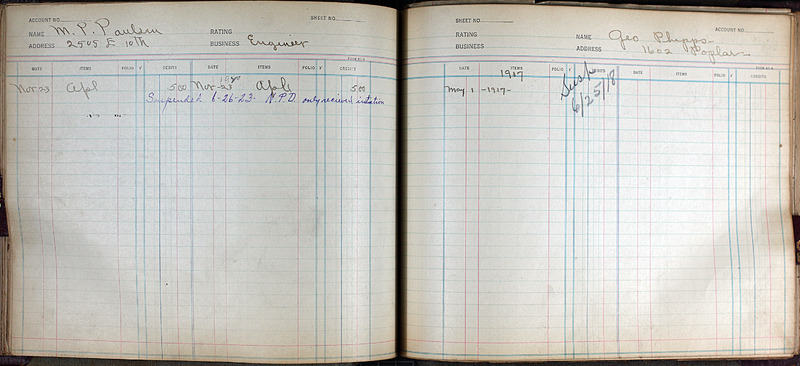 ACCOUNT NO. SHEET NO.
NAME M. P. Paulsen RATING
ADDRESS 2505 E 10th BUSINESS Engineer
DATE ITEMS FOLIO √ DEBITS DATE ITEMS FOLIO √ CREDITS
Nov-23 Apl 500 Nov-23 Apl 500
Suspended 6-26-23- N.P.D. only recieved
SHEET NO. ACCOUNT NO.
RATING NAME Geo Phipps
BUSINESS ADDRESS 1602 Poplar
DATE ITEMS FOLIO √ DEBITS DATE ITEMS FOLIO √ CREDITS
1917
May 1 -1917-
Susp
6/25/18